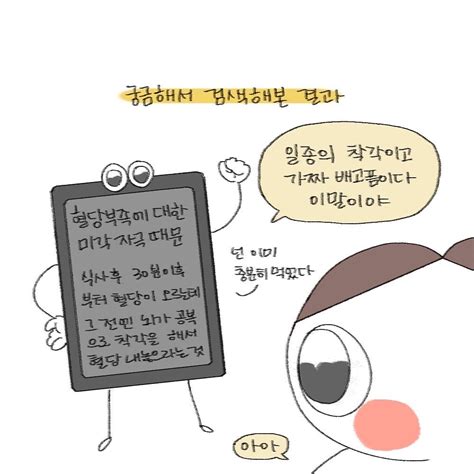 궁금해서 검색해본 결과
일종의 착각이고
가짜 배고픔이다
이말이야
혈당부족에 대한
미각 자극 때문
식사후 30분이후
부터 혈당이 오르는데
그 전엔 뇌가 공복
으로 착각을 해서
혈당 내놓으라는 것
넌 이미
충분히 먹었다
아아